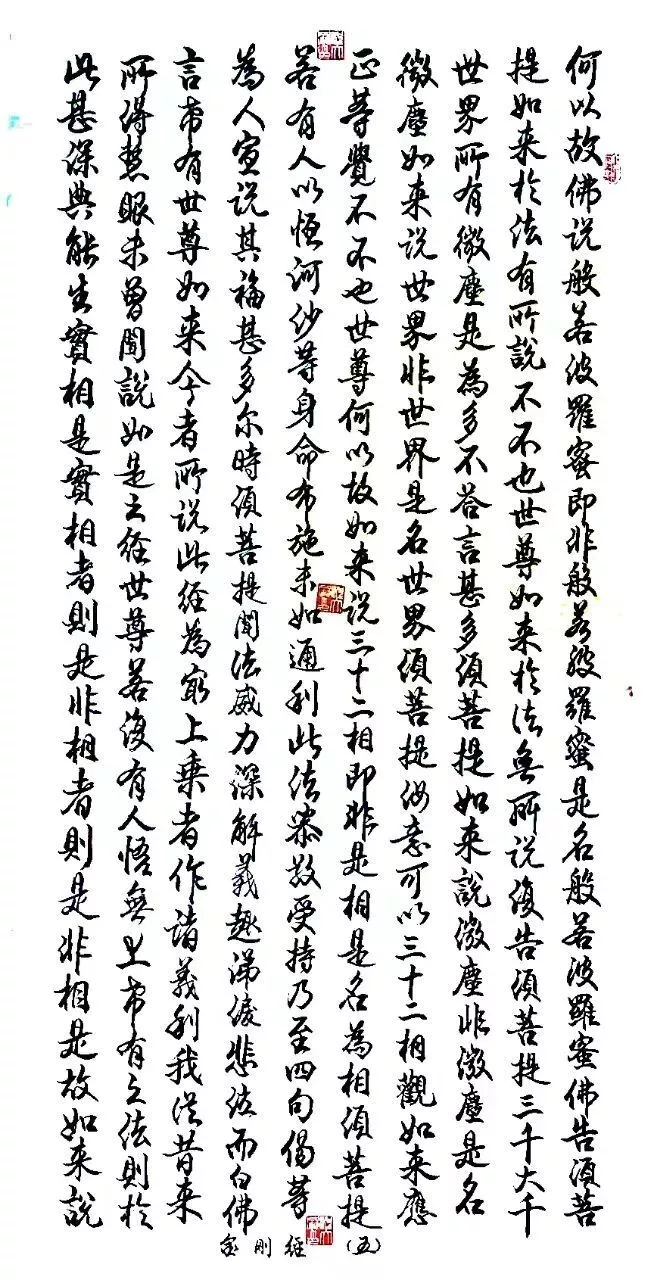 何以故佛说般若波羅蜜即非般若波羅蜜是名般若波羅蜜佛告須菩
提如来於法有所說不不也世尊如来於法無所说復告須菩提三千大千
世界所有微塵是為多不答言甚多須菩提如来說微塵非微塵是名
微塵如来说世界非世界是名世界須菩提汝意可以三十二相觀如来應
正等覺不不也世尊何以故如来说三十二相即非是相是名為相須菩提
若有人以恆河沙等身命布施未如通利此法恭敬受持乃至四句偈等
為人宣说其福甚多尔時須菩提聞法威力深解義趣涕淚悲泣而白佛
言希有世尊如来今者所说此经為最上乗者作諸義利我從昔来
所得慧眼未曾聞說如是之经世尊若復有人悟無上希有之法則於
此甚深典能生實相是實相者則是非相者則是非相是故如来說
金刚经(五)